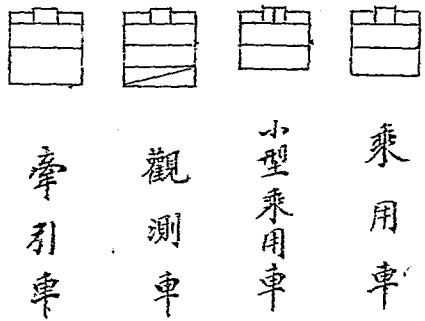 乘用車
小型乘用車
觀測車
牽引車